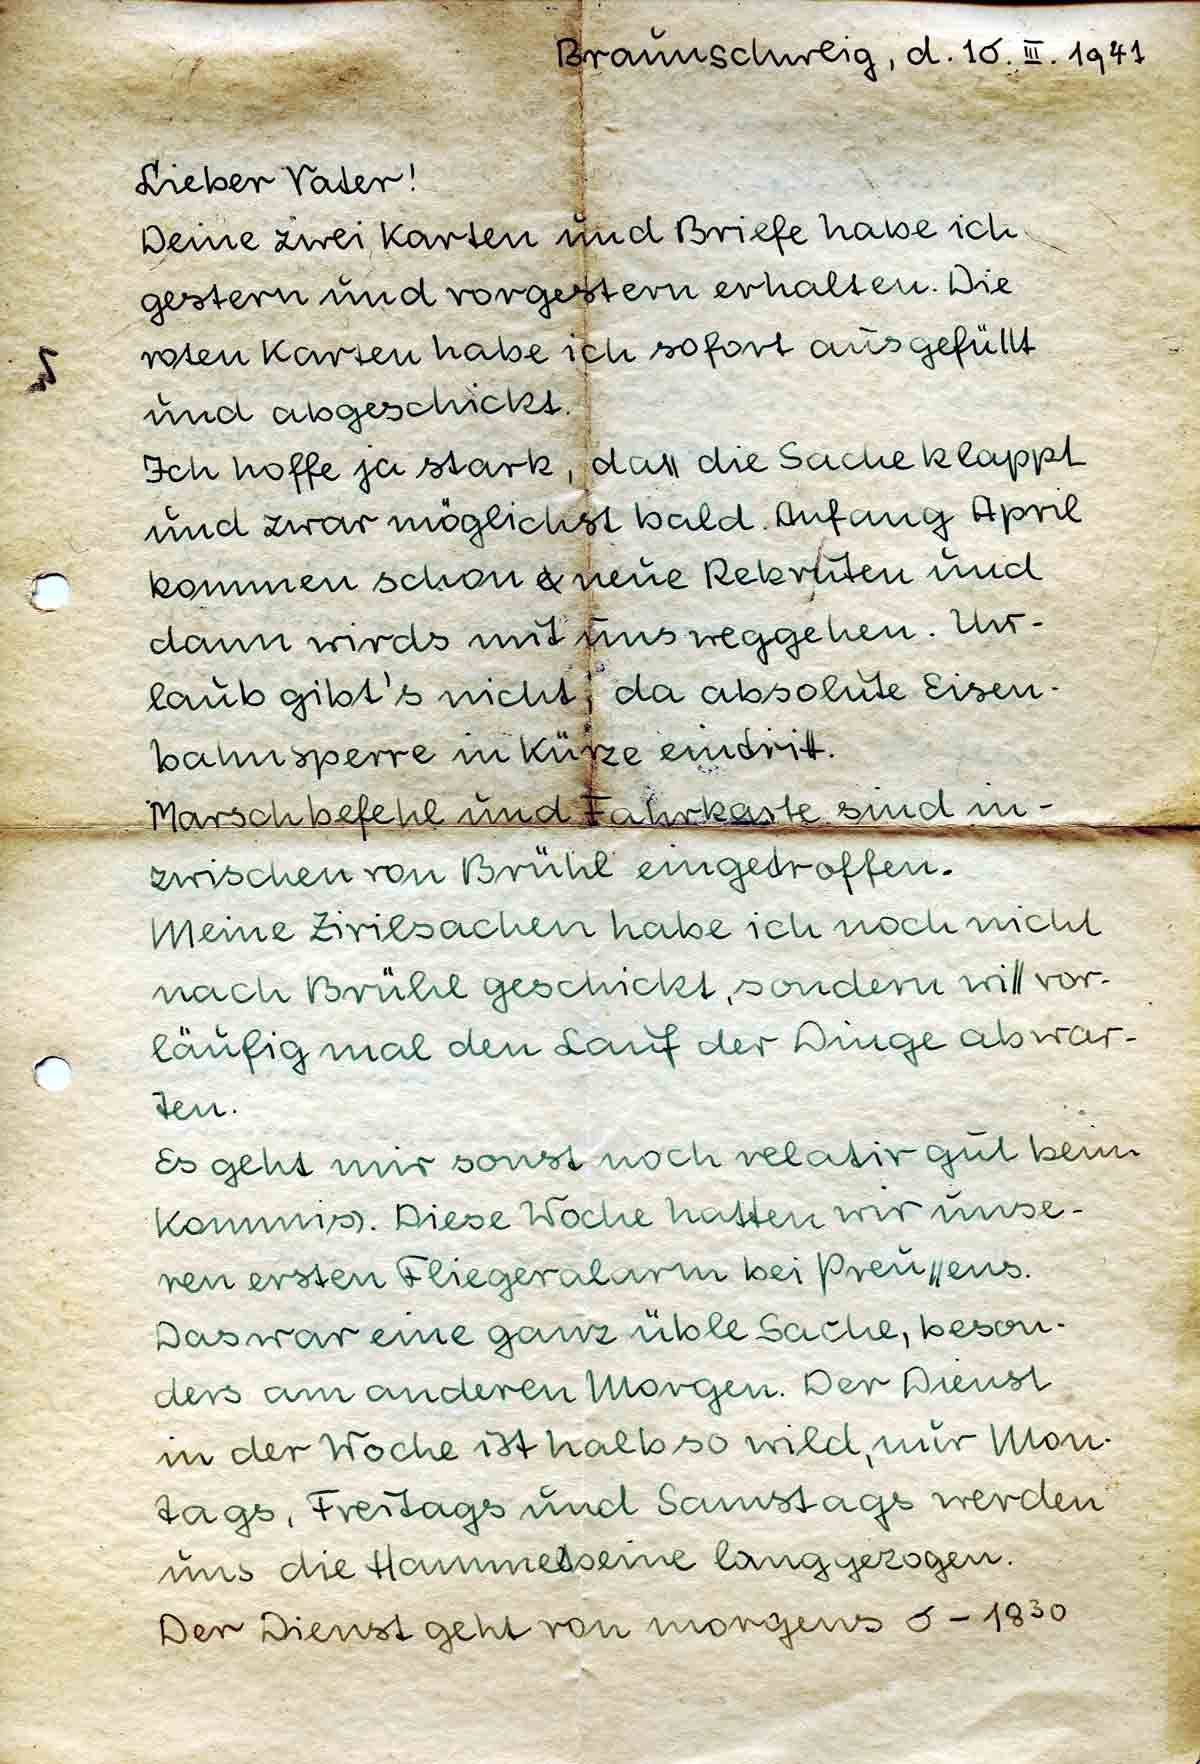 Braunschweig, d. 16. III. 1941
Lieber Vater!
Deine zwei Karten und Briefe habe ich
gestern und vorgestern erhalten. Die
roten Karten habe ich sofort ausgefüllt
und abgeschickt.
Ich hoffe ja stark, daß die Sache klappt
und zwar möglichst bald. Anfang April
kommen schon neue Rekruten und
dann wirds mit uns weggehen. Ur-
laub gibt's nicht, da absolute Eisen-
bahnsperre in Kürze eintritt.
Marschbefehl und Fahrkarte sind in-
zwischen von Brühl eingetroffen.
Meine Zivilsachen habe ich noch nicht
nach Brühl geschickt, sondern will vor-
läufig mal den Lauf der Dinge abwar-
ten.
Es geht mir sonst noch relativ gut beim
Kommis. Diese Woche hatten wir unse-
ren ersten Fliegeralarm bei Preußens.
Das war eine ganz üble Sache, beson-
ders am anderen Morgen. Der Dienst
in der Woche ist halb so wild, nur Mon-
tags, Freitags und Samstags werden
uns die Hammelbeine langgezogen.
Der Dienst geht von morgens 6 – 18³⁰